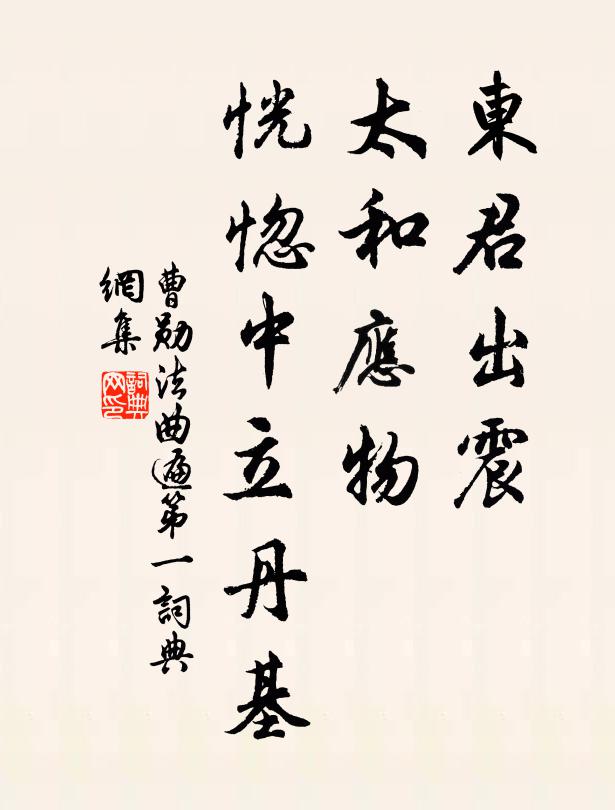 東君出震
太和應物
恍惚中立丹基
曹勛法曲遍第一詞典
網集
詞典
网印